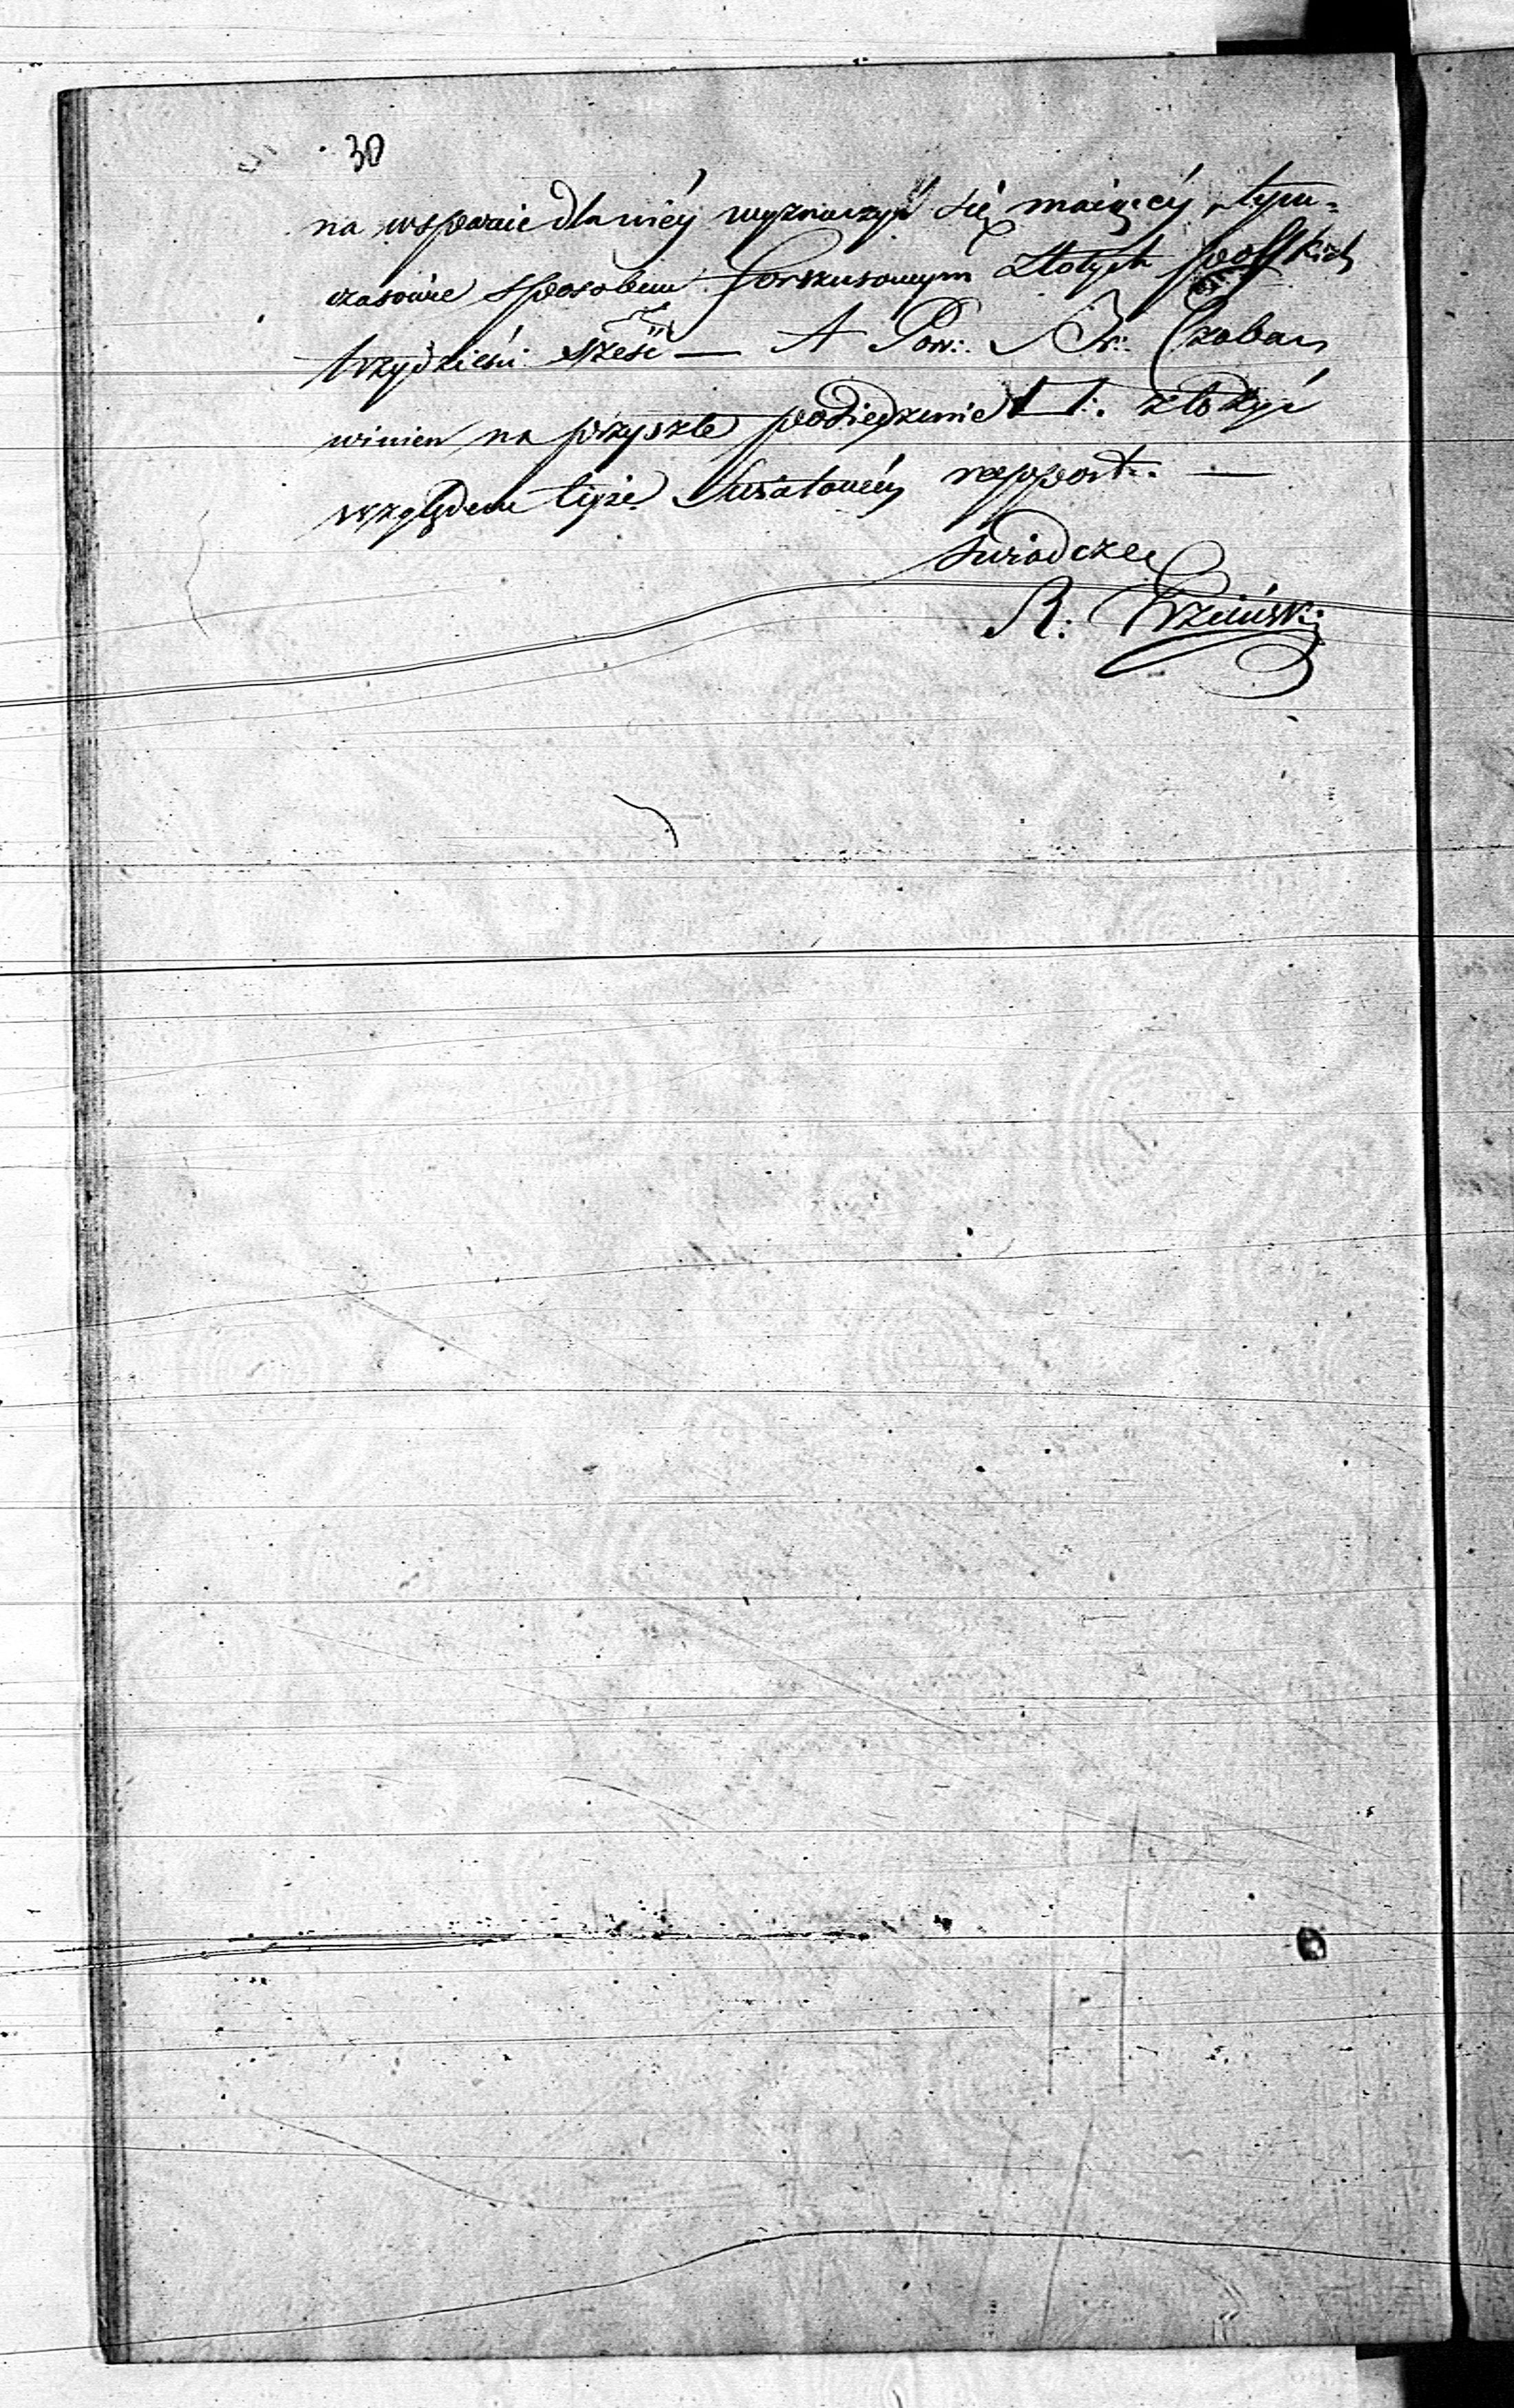 30
na wsparcie dla niéy wyznaczyć się maiącéy, tym=
czasowie sposobem forszusowym Złotych polskich
trzydzieści sześć — A Pow: Br: Czaban
winien na przyszłe posiedzenie złożyć
względem teyże Kwiatowéy rapport. —
Swiadczę
R: